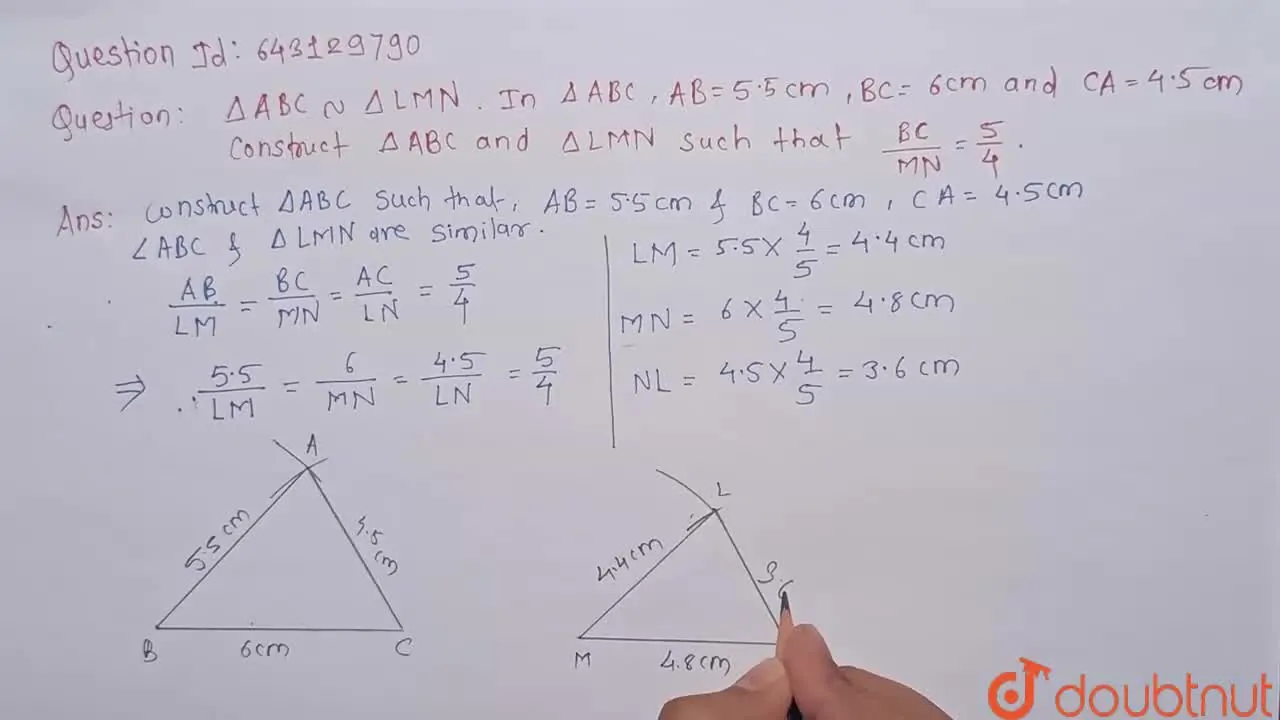 Question Id: 643129790
Question: △ABC ~ △LMN. In △ABC, AB = 5.5 cm, BC = 6cm and CA = 4.5 cm
Construct △ABC and △LMN such that BC/MN = 5/4.
Ans: Construct △ABC such that, AB = 5.5cm & BC = 6cm, CA = 4.5cm
∠ABC & △LMN are similar.
AB/LM = BC/MN = AC/LN = 5/4
⇒ 5.5/LM = 6/MN = 4.5/LN = 5/4
LM = 5.5 × 4/5 = 4.4 cm
MN = 6 × 4/5 = 4.8 cm
NL = 4.5 × 4/5 = 3.6 cm
A
5.5 cm
cm
B
6cm
C
L
4.4cm
3.6
M
4.8cm
doubtnut